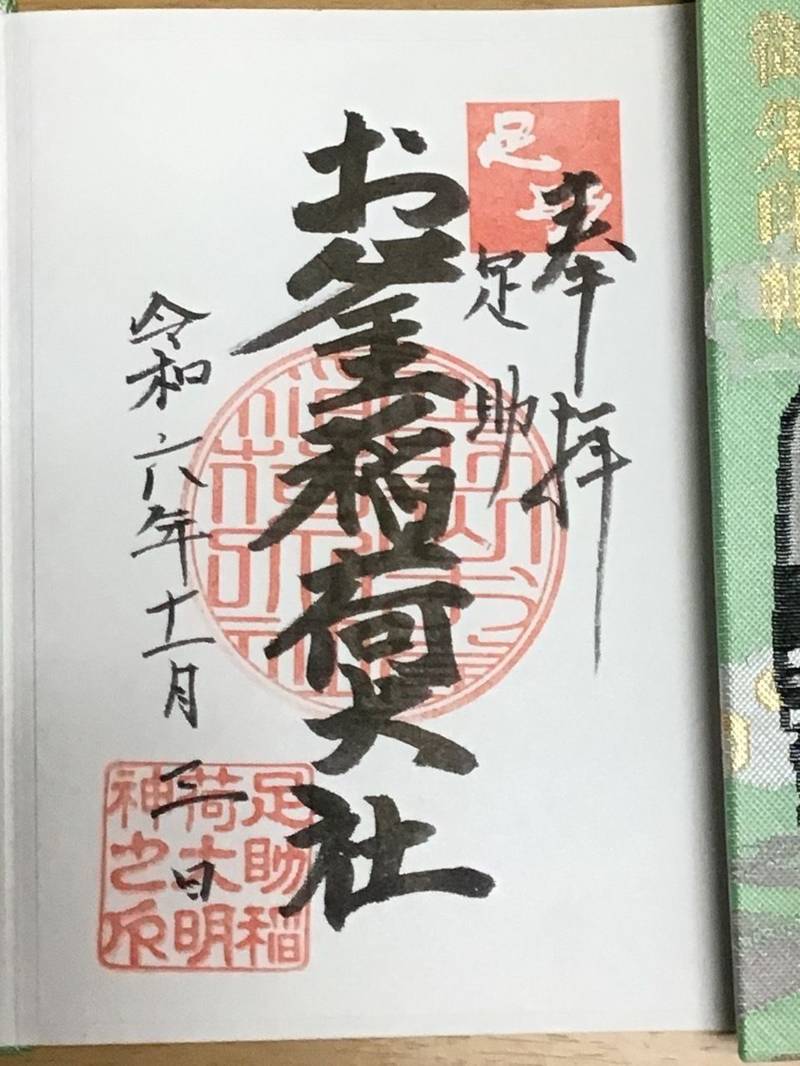 奉拝
足助
お釜稲荷大社
令和六年十一月三日
足助稲
荷大明
神之印
御朱印帳